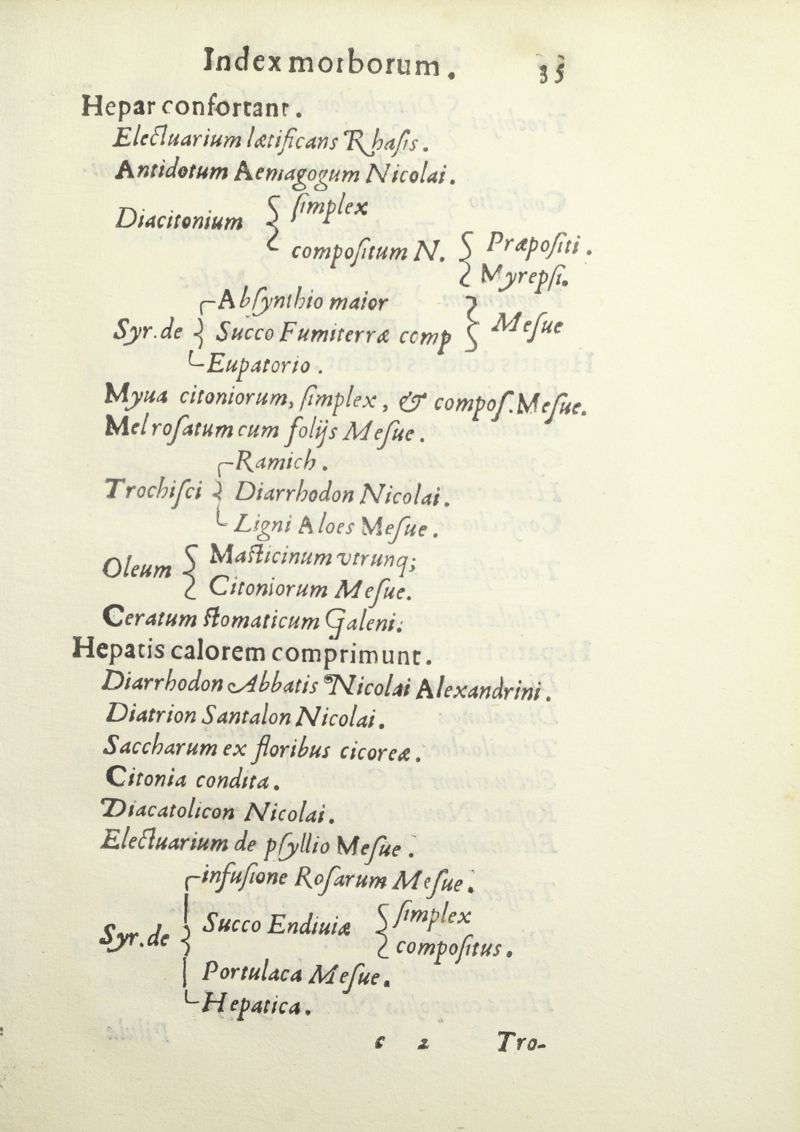 Index morborum. 35
Hepar confortant.
Electuarium lætificans Rhasis.
Antidotum Aemagogum Nicolai.
Diacitonium { ſimplex
compoſitum N. { Præpoſiti.
Myrepſi.
Abſynthio maior
Syr. de { Succo Fumiterræ comp } Meſue
Eupatorio.
Myua citoniorum, ſimplex, & compoſ. Meſue.
Mel roſatum cum folijs Meſue.
Ramich.
Trochiſci { Diarrhodon Nicolai.
Ligni Aloes Meſue.
Oleum { Maſticinum vtrunq;
Citoniorum Meſue.
Ceratum ſtomaticum Galeni.
Hepatis calorem comprimunt.
Diarrhodon Abbatis Nicolai Alexandrini.
Diatrion Santalon Nicolai.
Saccharum ex floribus cicoreæ.
Citonia condita.
Diacatolicon Nicolai.
Electuarium de pſyllio Meſue.
infuſione Roſarum Meſue.
Syr. de { Succo Endiuiæ { ſimplex
compoſitus.
Portulaca Meſue.
Hepatica.
c 2 Tro-